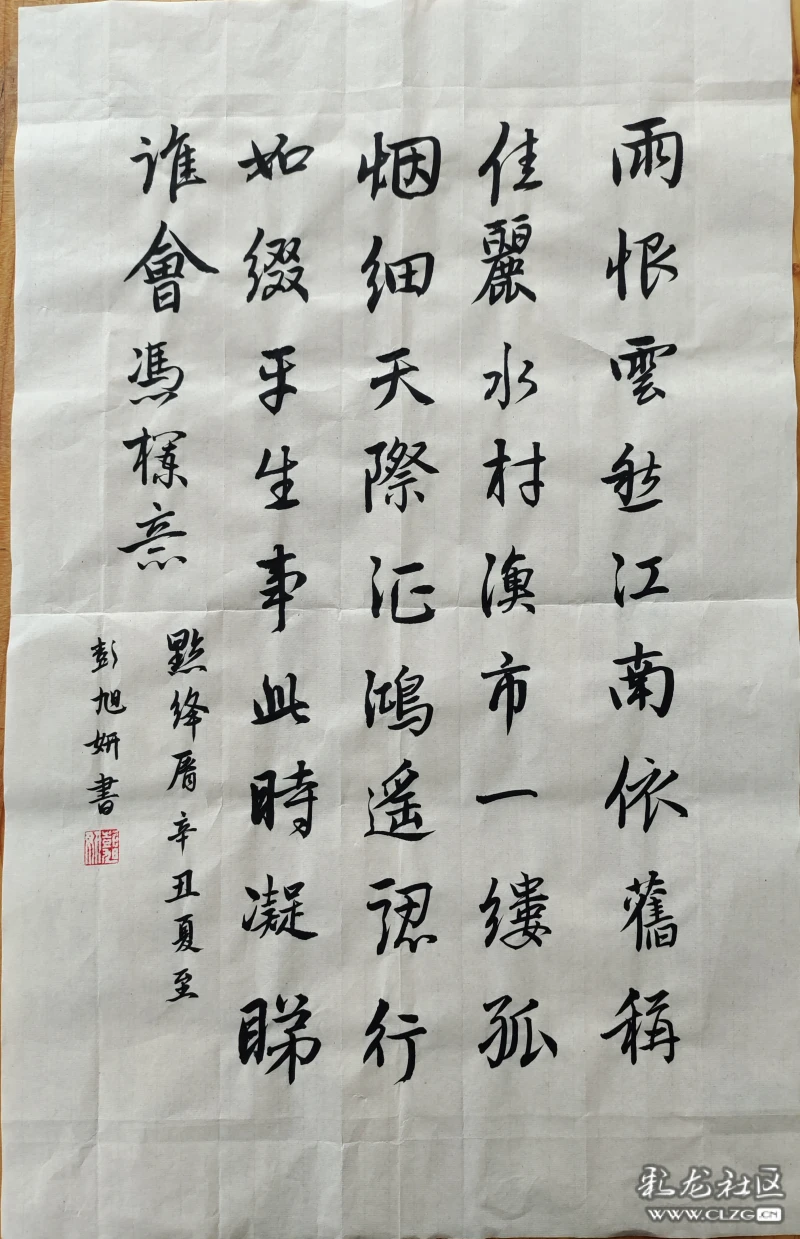 雨恨雲愁江南依舊稱
佳麗水村漁市一縷孤
烟細天際征鴻遥認行
如綴平生事此時凝睇
誰會憑欄意
點絳脣辛丑夏至
彭旭妍書
彩龙社区
WWW.CLZG.CN